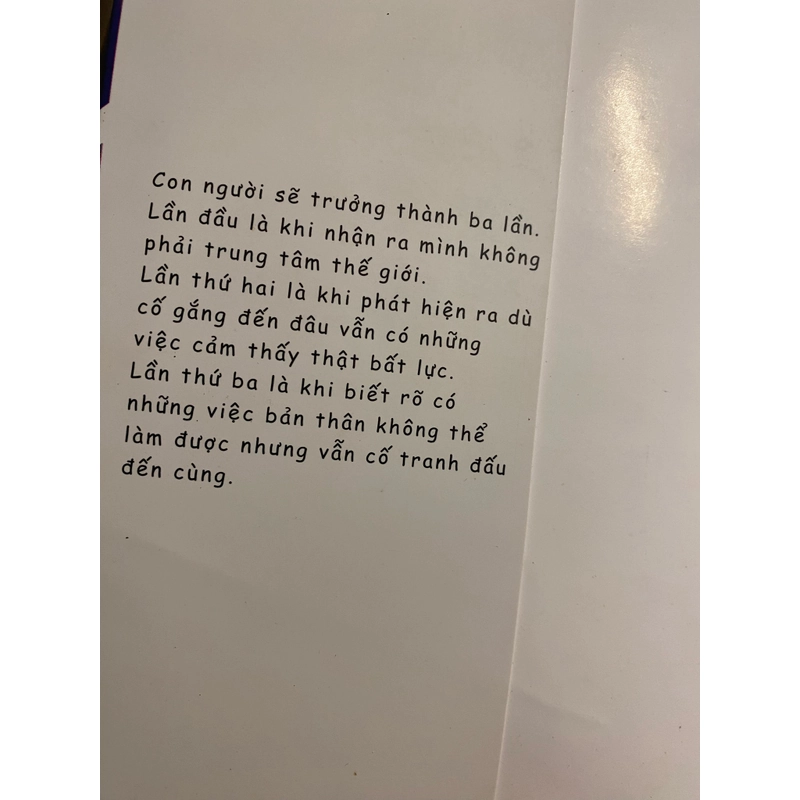 Con người sẽ trưởng thành ba lần.
Lần đầu là khi nhận ra mình không
phải trung tâm thế giới.
Lần thứ hai là khi phát hiện ra dù
cố gắng đến đâu vẫn có những
việc cảm thấy thật bất lực.
Lần thứ ba là khi biết rõ có
những việc bản thân không thể
làm được nhưng vẫn cố tranh đấu
đến cùng.